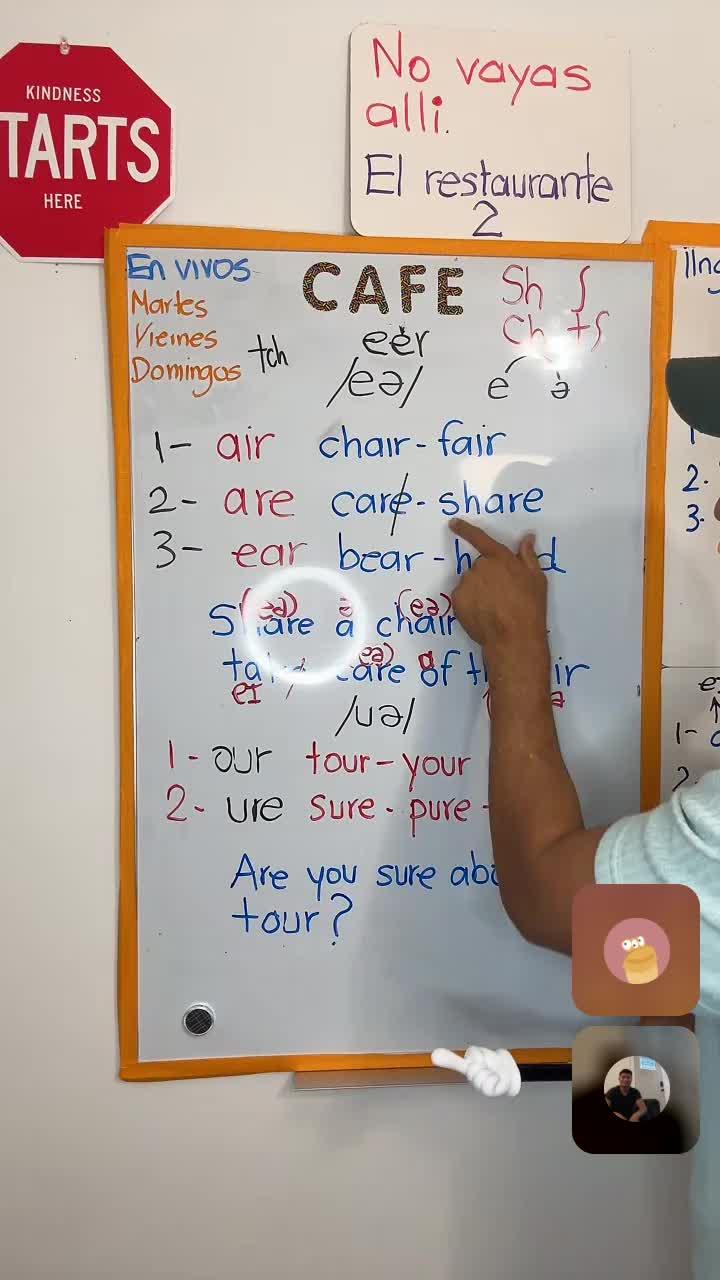 KINDNESS
TARTS
HERE
No vayas
alli.
El restaurante
2
En vivos
Martes
Vieines
Domingos
tch
CAFE
eer
/eə/
Sh ʃ
Ch tʃ
e ə
1- air chair - fair
2- are care - share
3- ear bear -
(eə) ə (eə)
Share a chair
(eə) ə
care of
eɪ
/uə/
1- our tour - your
2- ure sure - pure -
Are you sure
tour?
2.
3.
1-